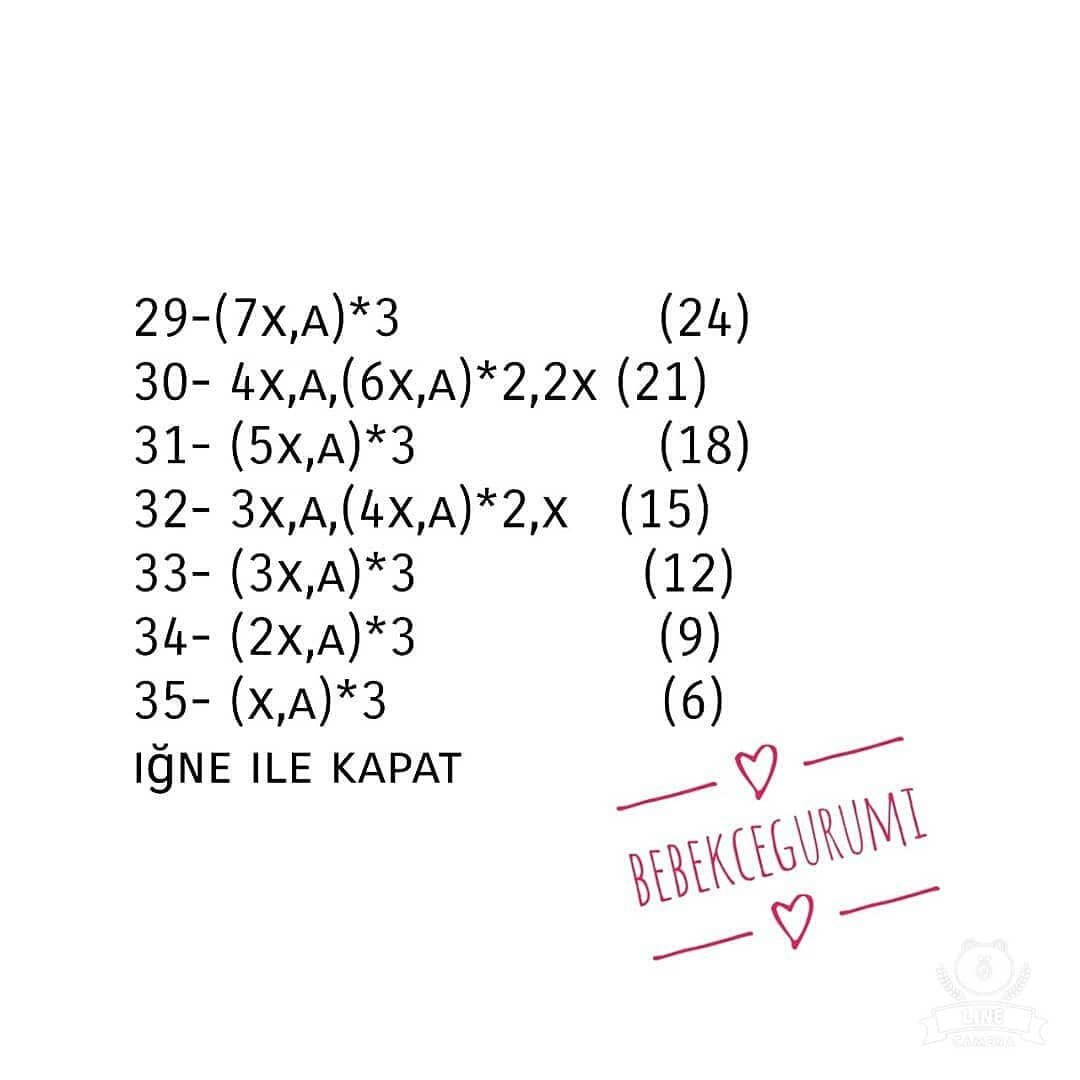 29-(7X,A)*3 (24)
30- 4X,A,(6X,A)*2,2X (21)
31- (5X,A)*3 (18)
32- 3X,A,(4X,A)*2,X (15)
33- (3X,A)*3 (12)
34- (2X,A)*3 (9)
35- (X,A)*3 (6)
IĞNE ILE KAPAT
BEBEKCEGURUMI
LINE
CAMERA